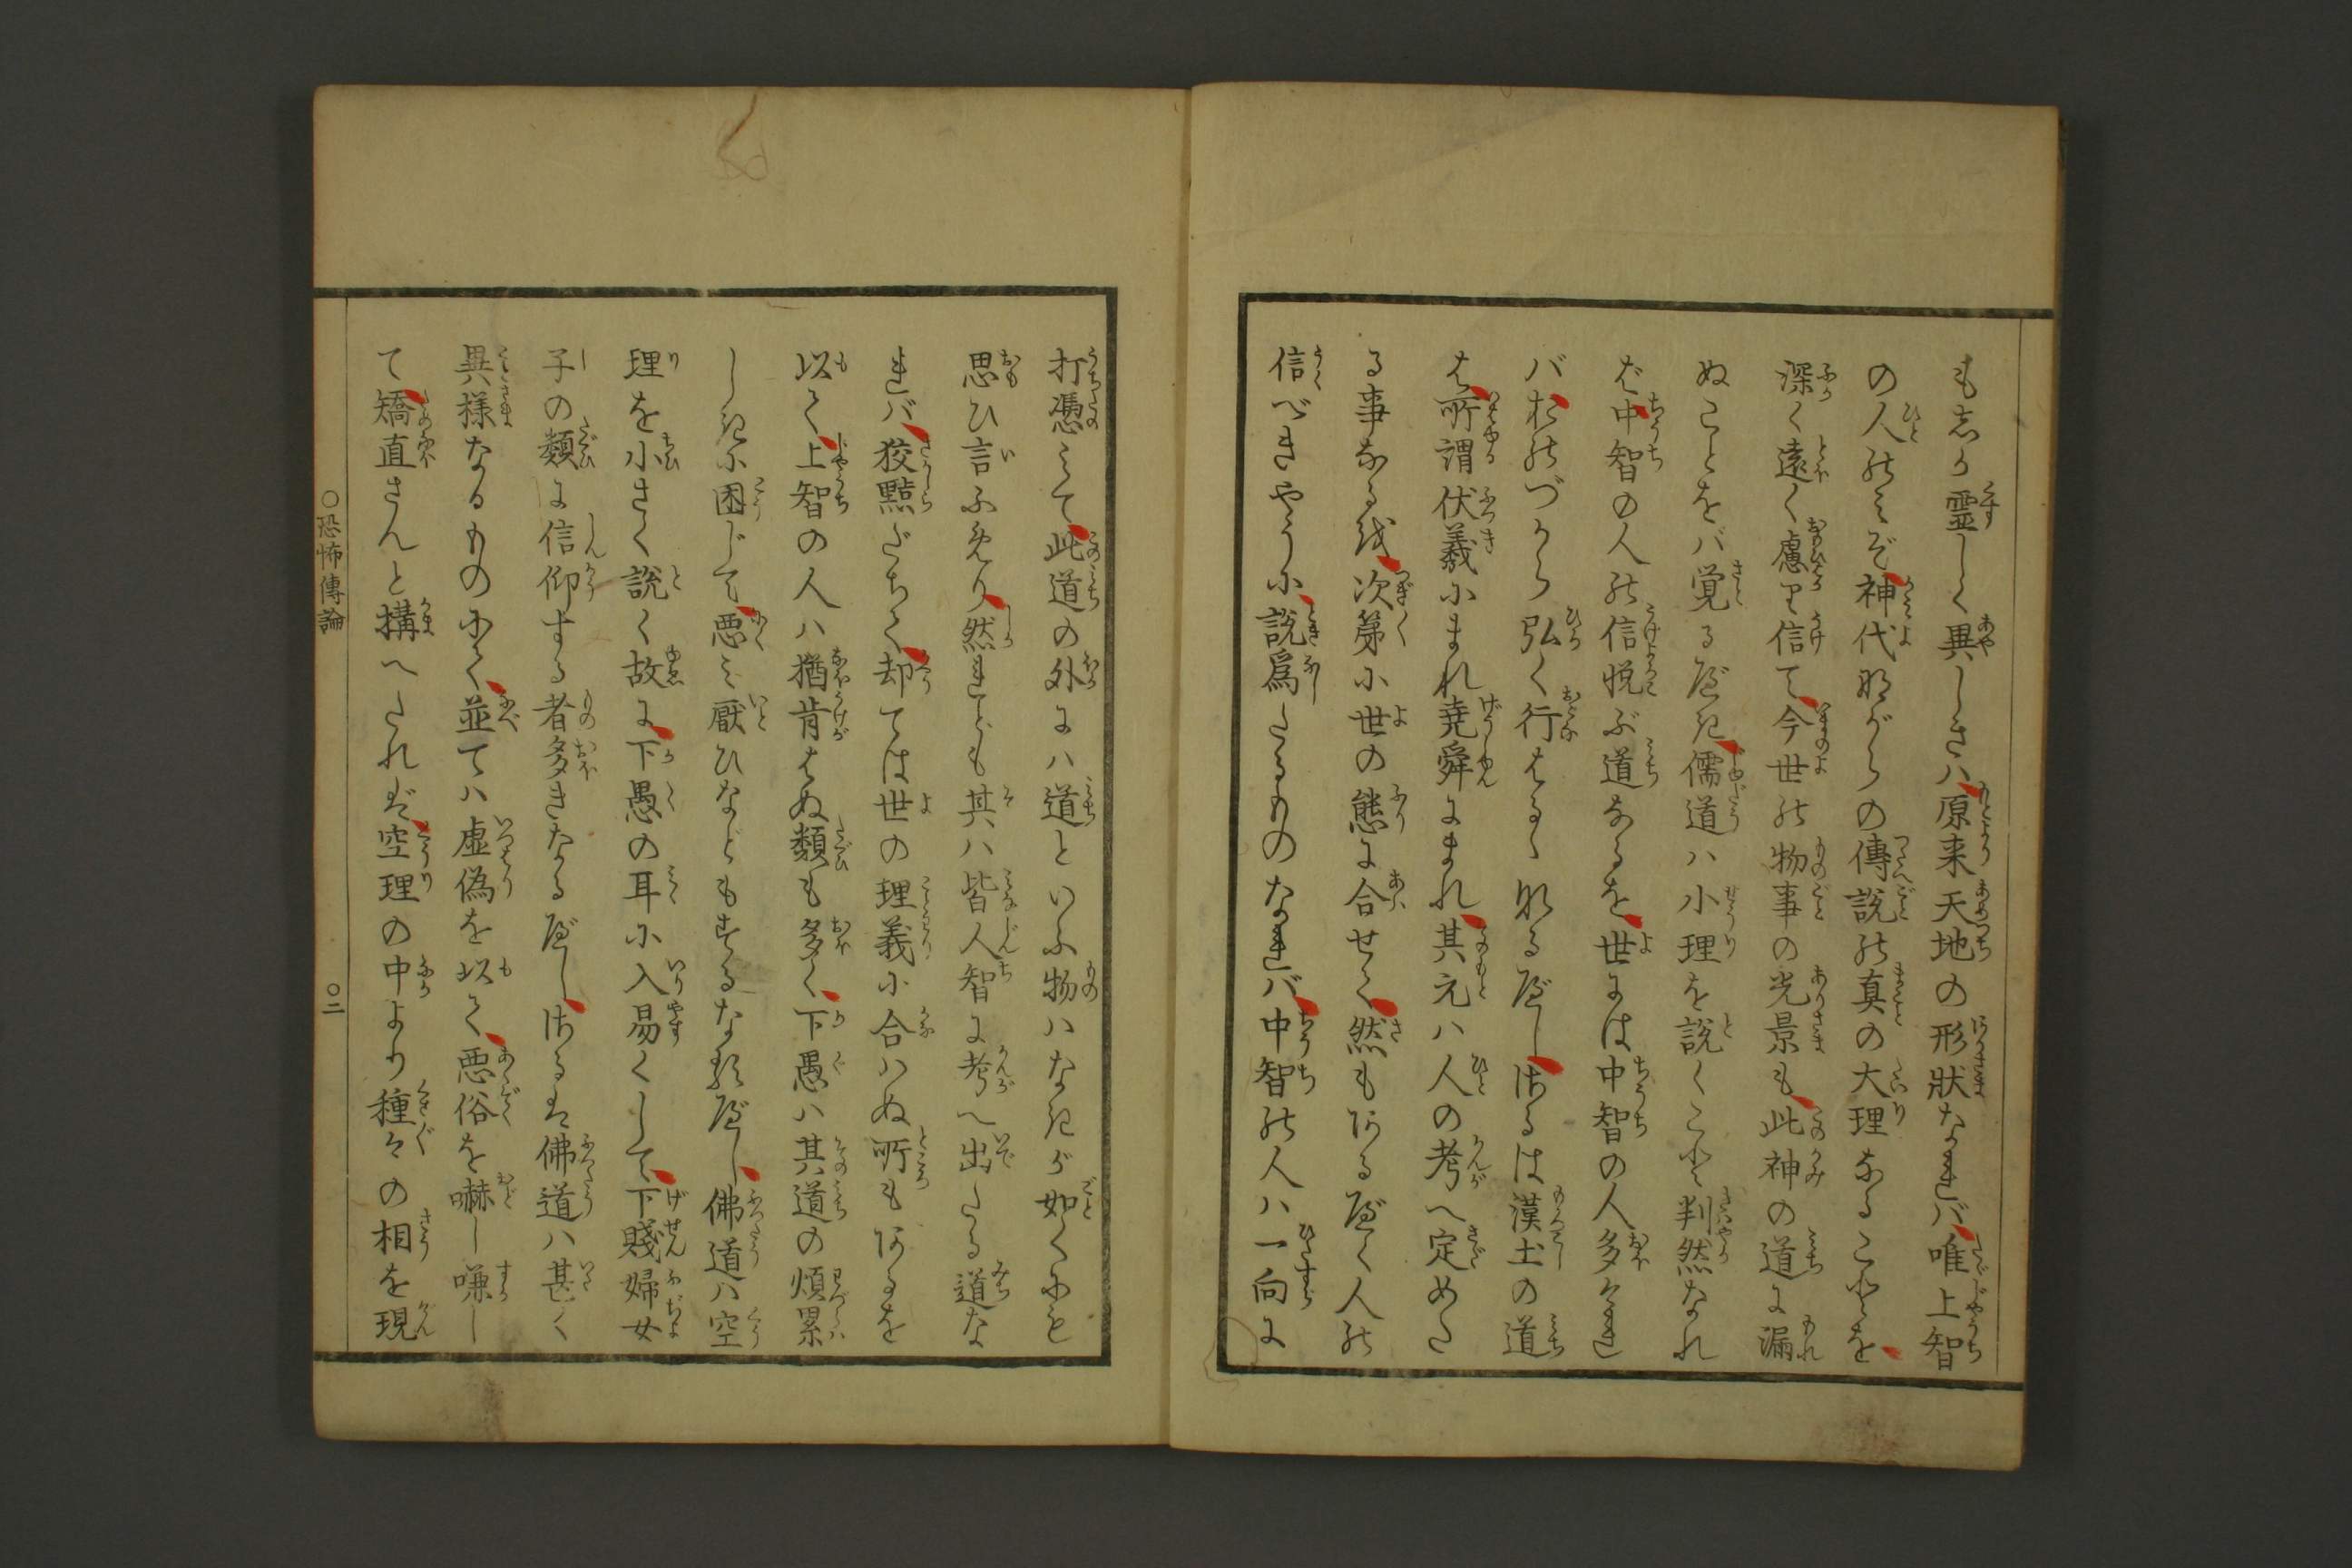 も志か霊しく異しきハ原来天地の形状なれバ唯上智
の人のミぞ神代ながらの傳説の真の大理なることを
深く遠く慮り信て今世の物事の光景も此神の道に漏
ぬことをバ覚る べき儒道ハ小理を説くこと判然なれ
ば中智の人の信悦ぶ道なるを世には中智の人多けれ
バおのづから弘く行はるゝなるべしさるは漢土の道
は所謂伏羲にまれ堯舜にまれ其元ハ人の考へ定めた
る事なるを次第に世の態に合せて然もあるべく人の
信べきやうに説為たるものなれバ中智の人ハ一向に
打憑ミて此道の外にハ道といふ物ハなきが如くにも
思ひ言ふめり然れども其ハ皆人智に考へ出たる道な
れバ狡黠だちて却ては世の理義に合ハぬ所もあるを
以て上智の人ハ猶肯はぬ類も多く下愚ハ其道の煩累
しきに困じて悪ミ厭ひなどもするなるべし佛道ハ空
理を小さく説く故に下愚の耳に入易くして下賤婦女
子の類に信仰する者多きなるべしさるは佛道ハ甚く
異様なるものにて並てハ虚偽を以て悪俗を嚇し嗛し
て矯直さんと構へたれば空理の中より種々の相を現
○恐怖傳論
○二